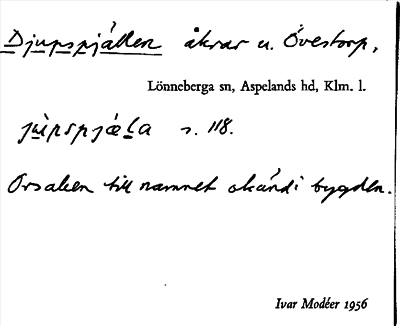 Djupspjällen åkrar u. Övestorp,
Lönneberga sn, Aspelands hd, Klm. l.
s. 118.
Orsaken till namnet okänd i bygden.
Ivar Modéer 1956